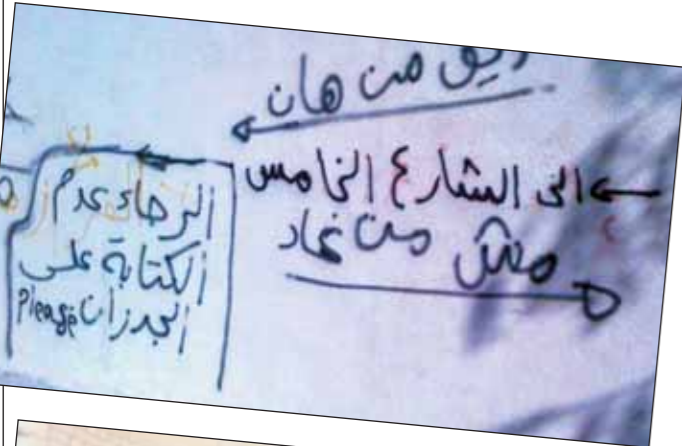 من هان
الى الشارع الخامس
مش من غاد
الرجاء عدم
الكتابة على
الجدران Please